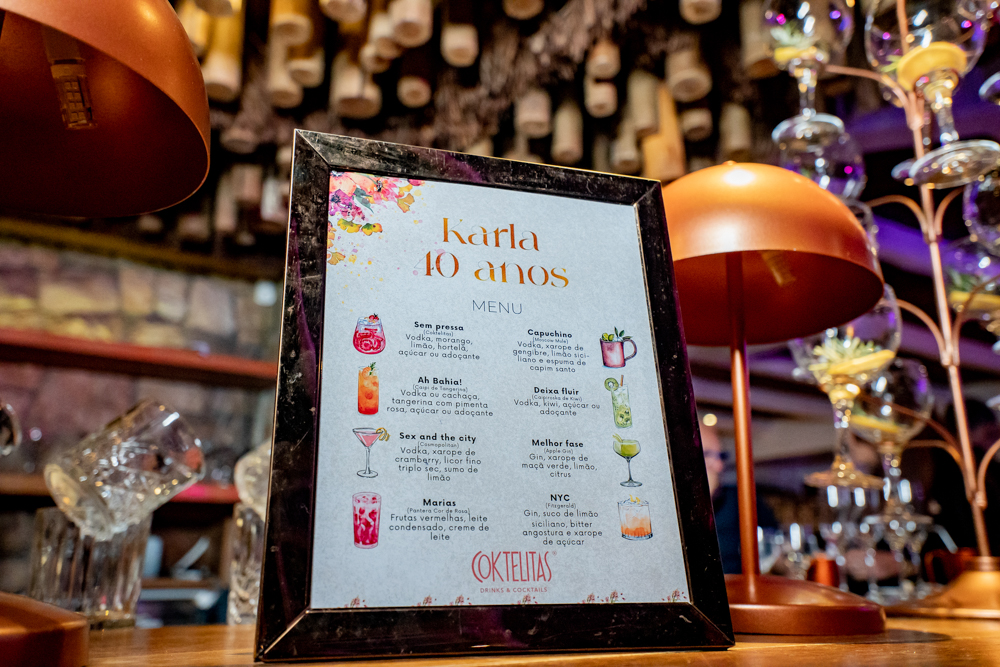 Karla
40 anos
MENU
Sem pressa
(Coktelitas)
Vodka, morango,
limão, hortelã,
açúcar ou adoçante
Ah Bahia!
(Caipi de Tangerina)
Vodka ou cachaça,
tangerina com pimenta
rosa, açúcar ou adoçante
Sex and the city
(Cosmopolitan)
Vodka, xarope de
cramberry, licor fino
triplo sec, sumo de
limão
Marias
(Pantera Cor de Rosa)
Frutas vermelhas, leite
condensado, creme de
leite
Capuchino
(Moscow Mule)
Vodka, xarope de
gengibre, limão sici-
liano e espuma de
capim santo
Deixa fluir
(Caipiroska de Kiwi)
Vodka, kiwi, açúcar ou
adoçante
Melhor fase
(Apple Gin)
Gin, xarope de
maçã verde, limão,
citrus
NYC
(Fitzgerald)
Gin, suco de limão
siciliano, bitter
angostura e xarope
de açúcar
COKTELITAS
DRINKS & COCKTAILS